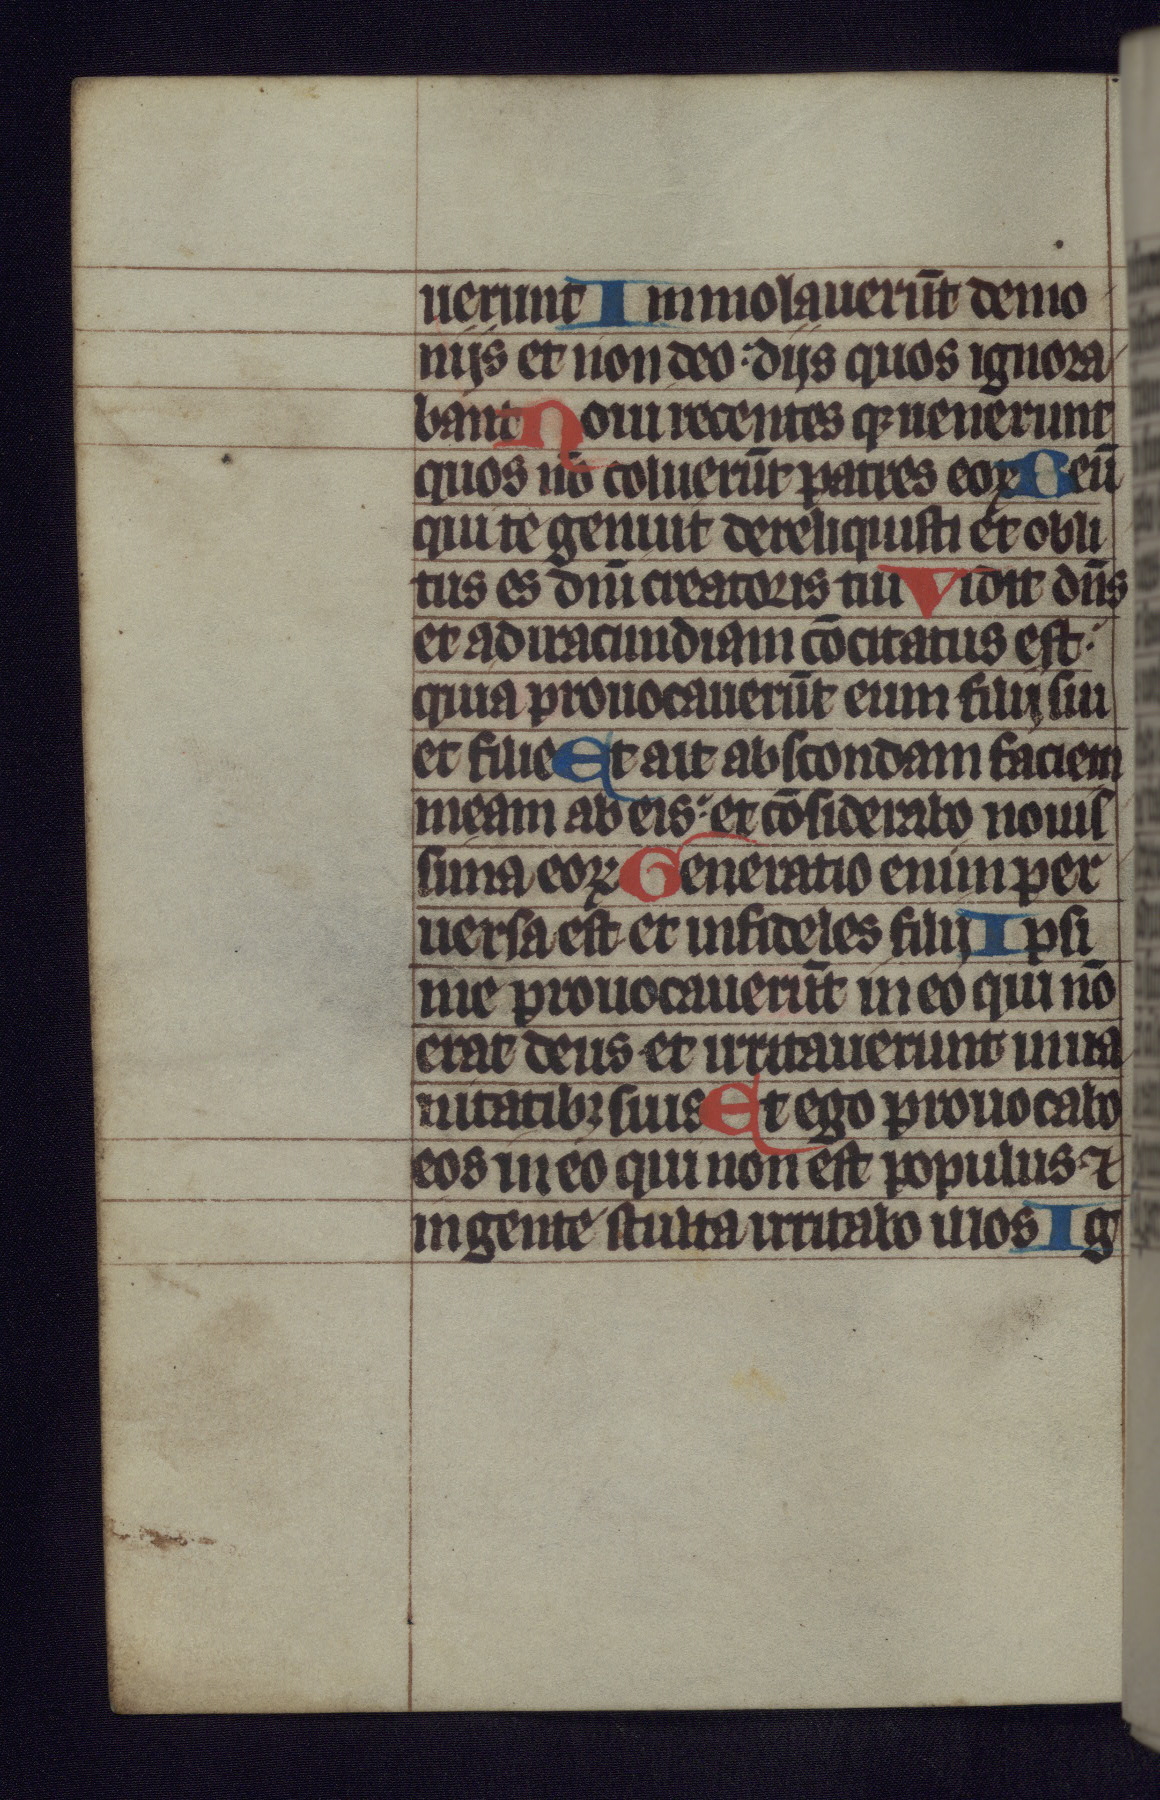 uerunt Immolauerūt demo
nijs et non deo: dijs quos ignora
bant Noui recentes qꝫ uenerunt
quos nō coluerūt patres eoꝝ Deū
qui te genuit dereliquisti et obli
tus es dnī creatoris tui Vidit dn̄s
et ad iracundiam cōcitatus est:
quia prouocauerūt eum filij sui
et filie Et ait abscondam faciem
meam ab eis: et cōsiderabo nouis
sima eoꝝ Generatio enim per
uersa est et infideles filij Ipsi
me prouocauerūt in eo qui nō
erat deus et irritauerunt in ua
nitatibꝫ suis Et ego prouocabo
eos in eo qui non est populus ⁊
in gente stulta irritabo illos Ig